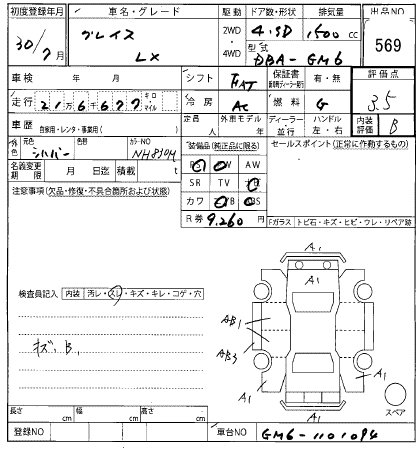 初度登録年月 車名・グレード 駆動 ドア数・形状 排気量 出品NO
30/7月 グレイス LX 2WD 4WD 4.SD 1500 cc 569
型式 DBA-GM6
車検 年 月 シフト FAT 保証書 有・無 評価点 3.5
走行 21万6千677 キロ・マイル 冷房 AC 燃料 G
車歴 自家用・レンタ・事業用( ) 定員 人 外車モデル 年 ディーラー・並行 ハンドル 左・右 内装評価 B
外色 元色 シルバー 色替 カラーNO NH830M 装備品(純正品に限る) セールスポイント(正常に作動するもの)
名義変更期限 月 日 積載 t AW
注意事項(欠品・修復・不具合箇所および状態) SR TV
カワ
R券 9.260円
Fガラス トビ石・キズ・ヒビ・ウレ・リペア跡
検査員記入 内装 汚レ・スレ・キズ・キレ・コゲ・穴
キズ B1
A1
A1
AB1
AB3
A1
A1
A1
スペア
長さ cm 幅 cm 高さ cm
登録NO 車台NO GM6-1101094